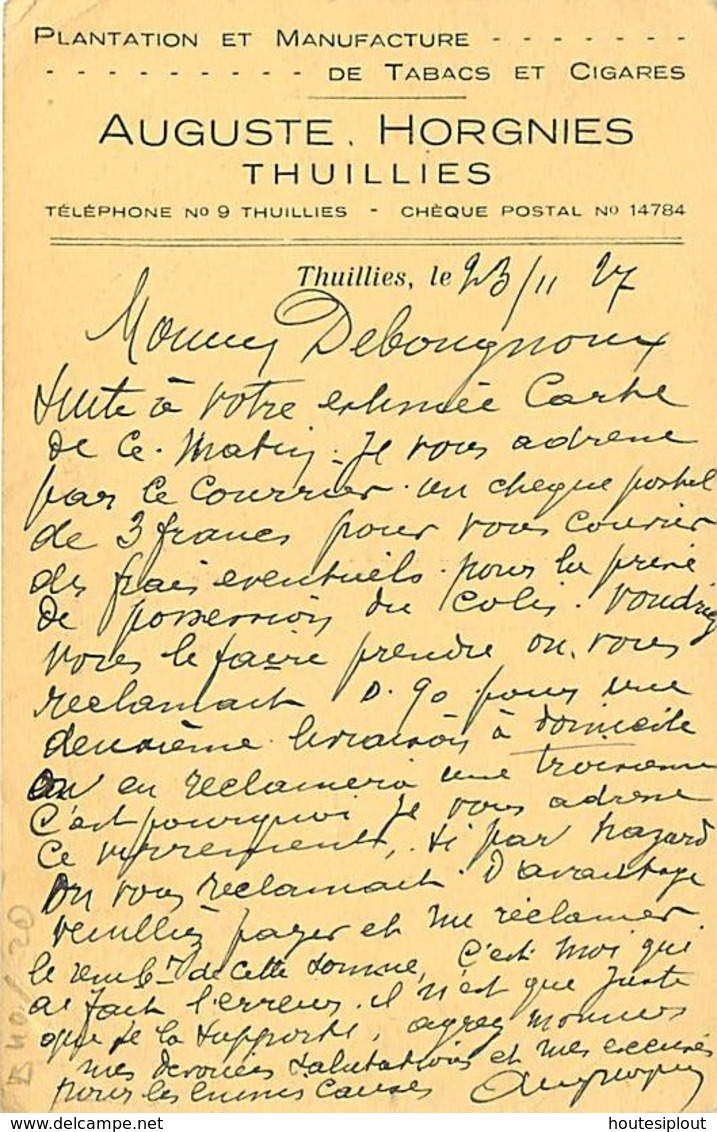 PLANTATION ET MANUFACTURE - - - - - - -
- - - - - - - - - - DE TABACS ET CIGARES
AUGUSTE. HORGNIES
THUILLIES
TÉLÉPHONE No 9 THUILLIES - CHÈQUE POSTAL No 14784
Thuillies, le 23/11 27
Debougnoux
Suite à votre estimée Carte
de ce. Matin. Je vous adresse
par ce courrier. un cheque postal
de 3 francs pour vous couvrir
des frais eventuels. pour la prise
de possession du Colis. Voudriez
vous le faire prendre on. vous
reclamait 0.90 pour une
deuxième livraison à domicile
on en reclamera une troisieme
C'est pourquoi je vous adresse
ce virrement, si par hazard
on vous reclamait. D'avantage
veuilliez payer et me réclamer.
le rembt de cette somme, C'est moi qui
ai fait l'erreur. il n'est que juste
que je la supporte, agrez Monsieur
mes devouées salutations et mes excuses
pour les ennuis causés
B 40.- 20
houtesiplout